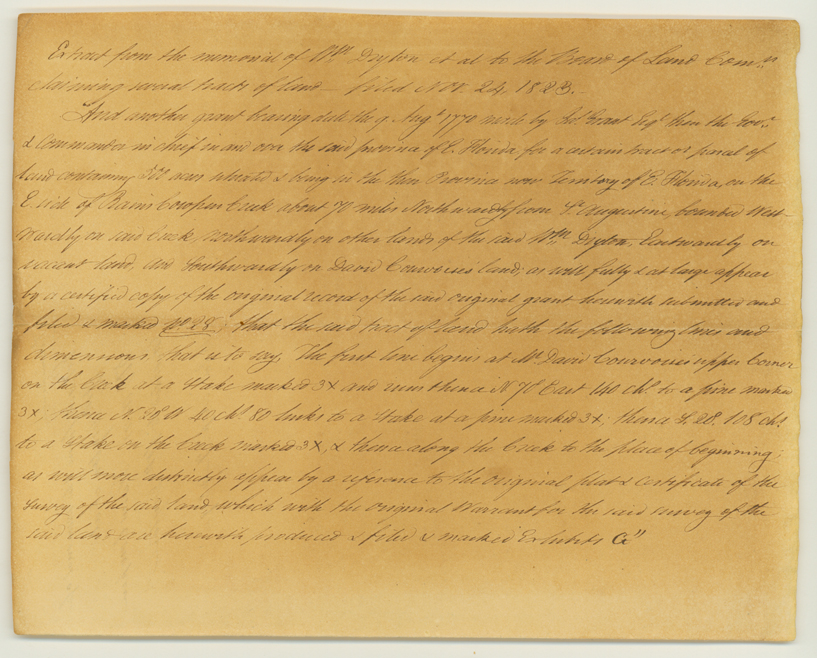 Extract from the memorial of Wm. Drayton et al to the Board of Land Comrs.
claiming several tracts of land — filed Nov. 24, 1823.
And another grant bearing date the 9 Augt. 1770 made by Grant Esqr. then the Govr.
& Commander in chief in and over the said province of E. Florida, for a certain tract or parcel of
land containing acres situated & being in the then Province now Territory of E. Florida, on the
E. side of Creek about 70 miles Northwardly from St. Augustine, bounded West-
wardly on said Creek, northwardly on other lands of the said Wm. Drayton, Eastwardly on
vacant land, and Southwardly on David Courvoisies land; as will fully & at large appear
by a certified copy of the original record of the said original grant herewith submitted and
filed & marked No. 28. that the said tract of land hath the following lines and
dimensions that is to say, The first line begins at Mr. David Courvoisies upper Corner
on the Creek at a Stake marked 3X and runs thence N. 70 East 140 chs. to a pine marked
3X; thence N. 28 W 40 chs. 80 links to a Stake at a pine marked 3X; thence S. 28. 108 chs.
to a Stake on the Creek marked 3X, & thence along the Creek to the place of beginning;
as will more distinctly appear by a reference to the original plat & certificate of the
survey of the said land, which with the original Warrant for the said survey of the
said land are herewith produced & filed & marked Exhibits G"